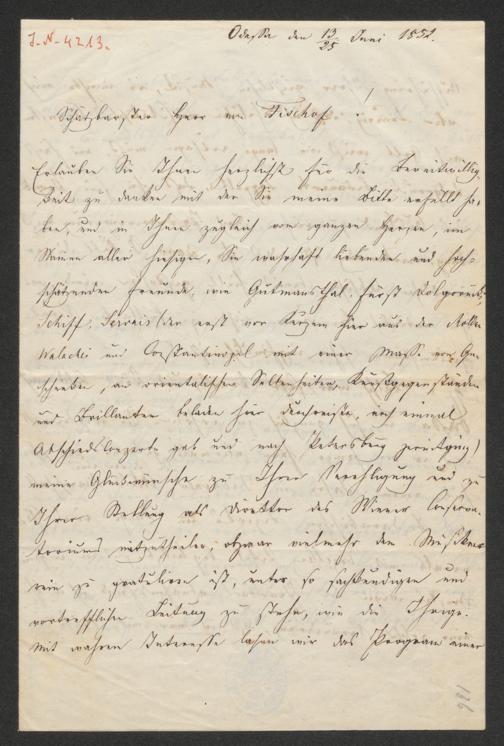 J.-N-4213.
Odessa den 13/25 Juni 1852.
Schätzbarster Herr von Fischof!
Erlauben Sie Ihnen herzlichst für die Bereitwillig-
keit zu danken mit der Sie meine Bitte erfüllt ha-
ben, und in Ihnen zugleich vom ganzen Herzen, im
Namen aller hiesigen, Sie wahrhaft liebenden und hoch-
schätzenden Freunde, wie Gutmansthal, Fürst Dolgorouki,
Schiff, Servais (der erst vor Kurzem hier aus der Moldau
Walachei und Constantinopel mit einer Masse von Ge-
schenken, an orientalischen Seltenheiten, Kunstgegenständen
und Brillanten beladen hier durchreiste, noch einmal
Abschiedsconzerte gab und nach Petersburg
meine Glückwünsche zu Ihrer Verehligung und zu
Ihrer Stellung als Direktor des Wiener Conserva-
toriums mitzutheilen, obzwar vielmehr dem
zu gratuliren ist, unter so sachkundigen und
vortrefflichen Leitung zu stehn, wie die Ihrige.
Mit wahrem Interesse lasen wir das Program einer